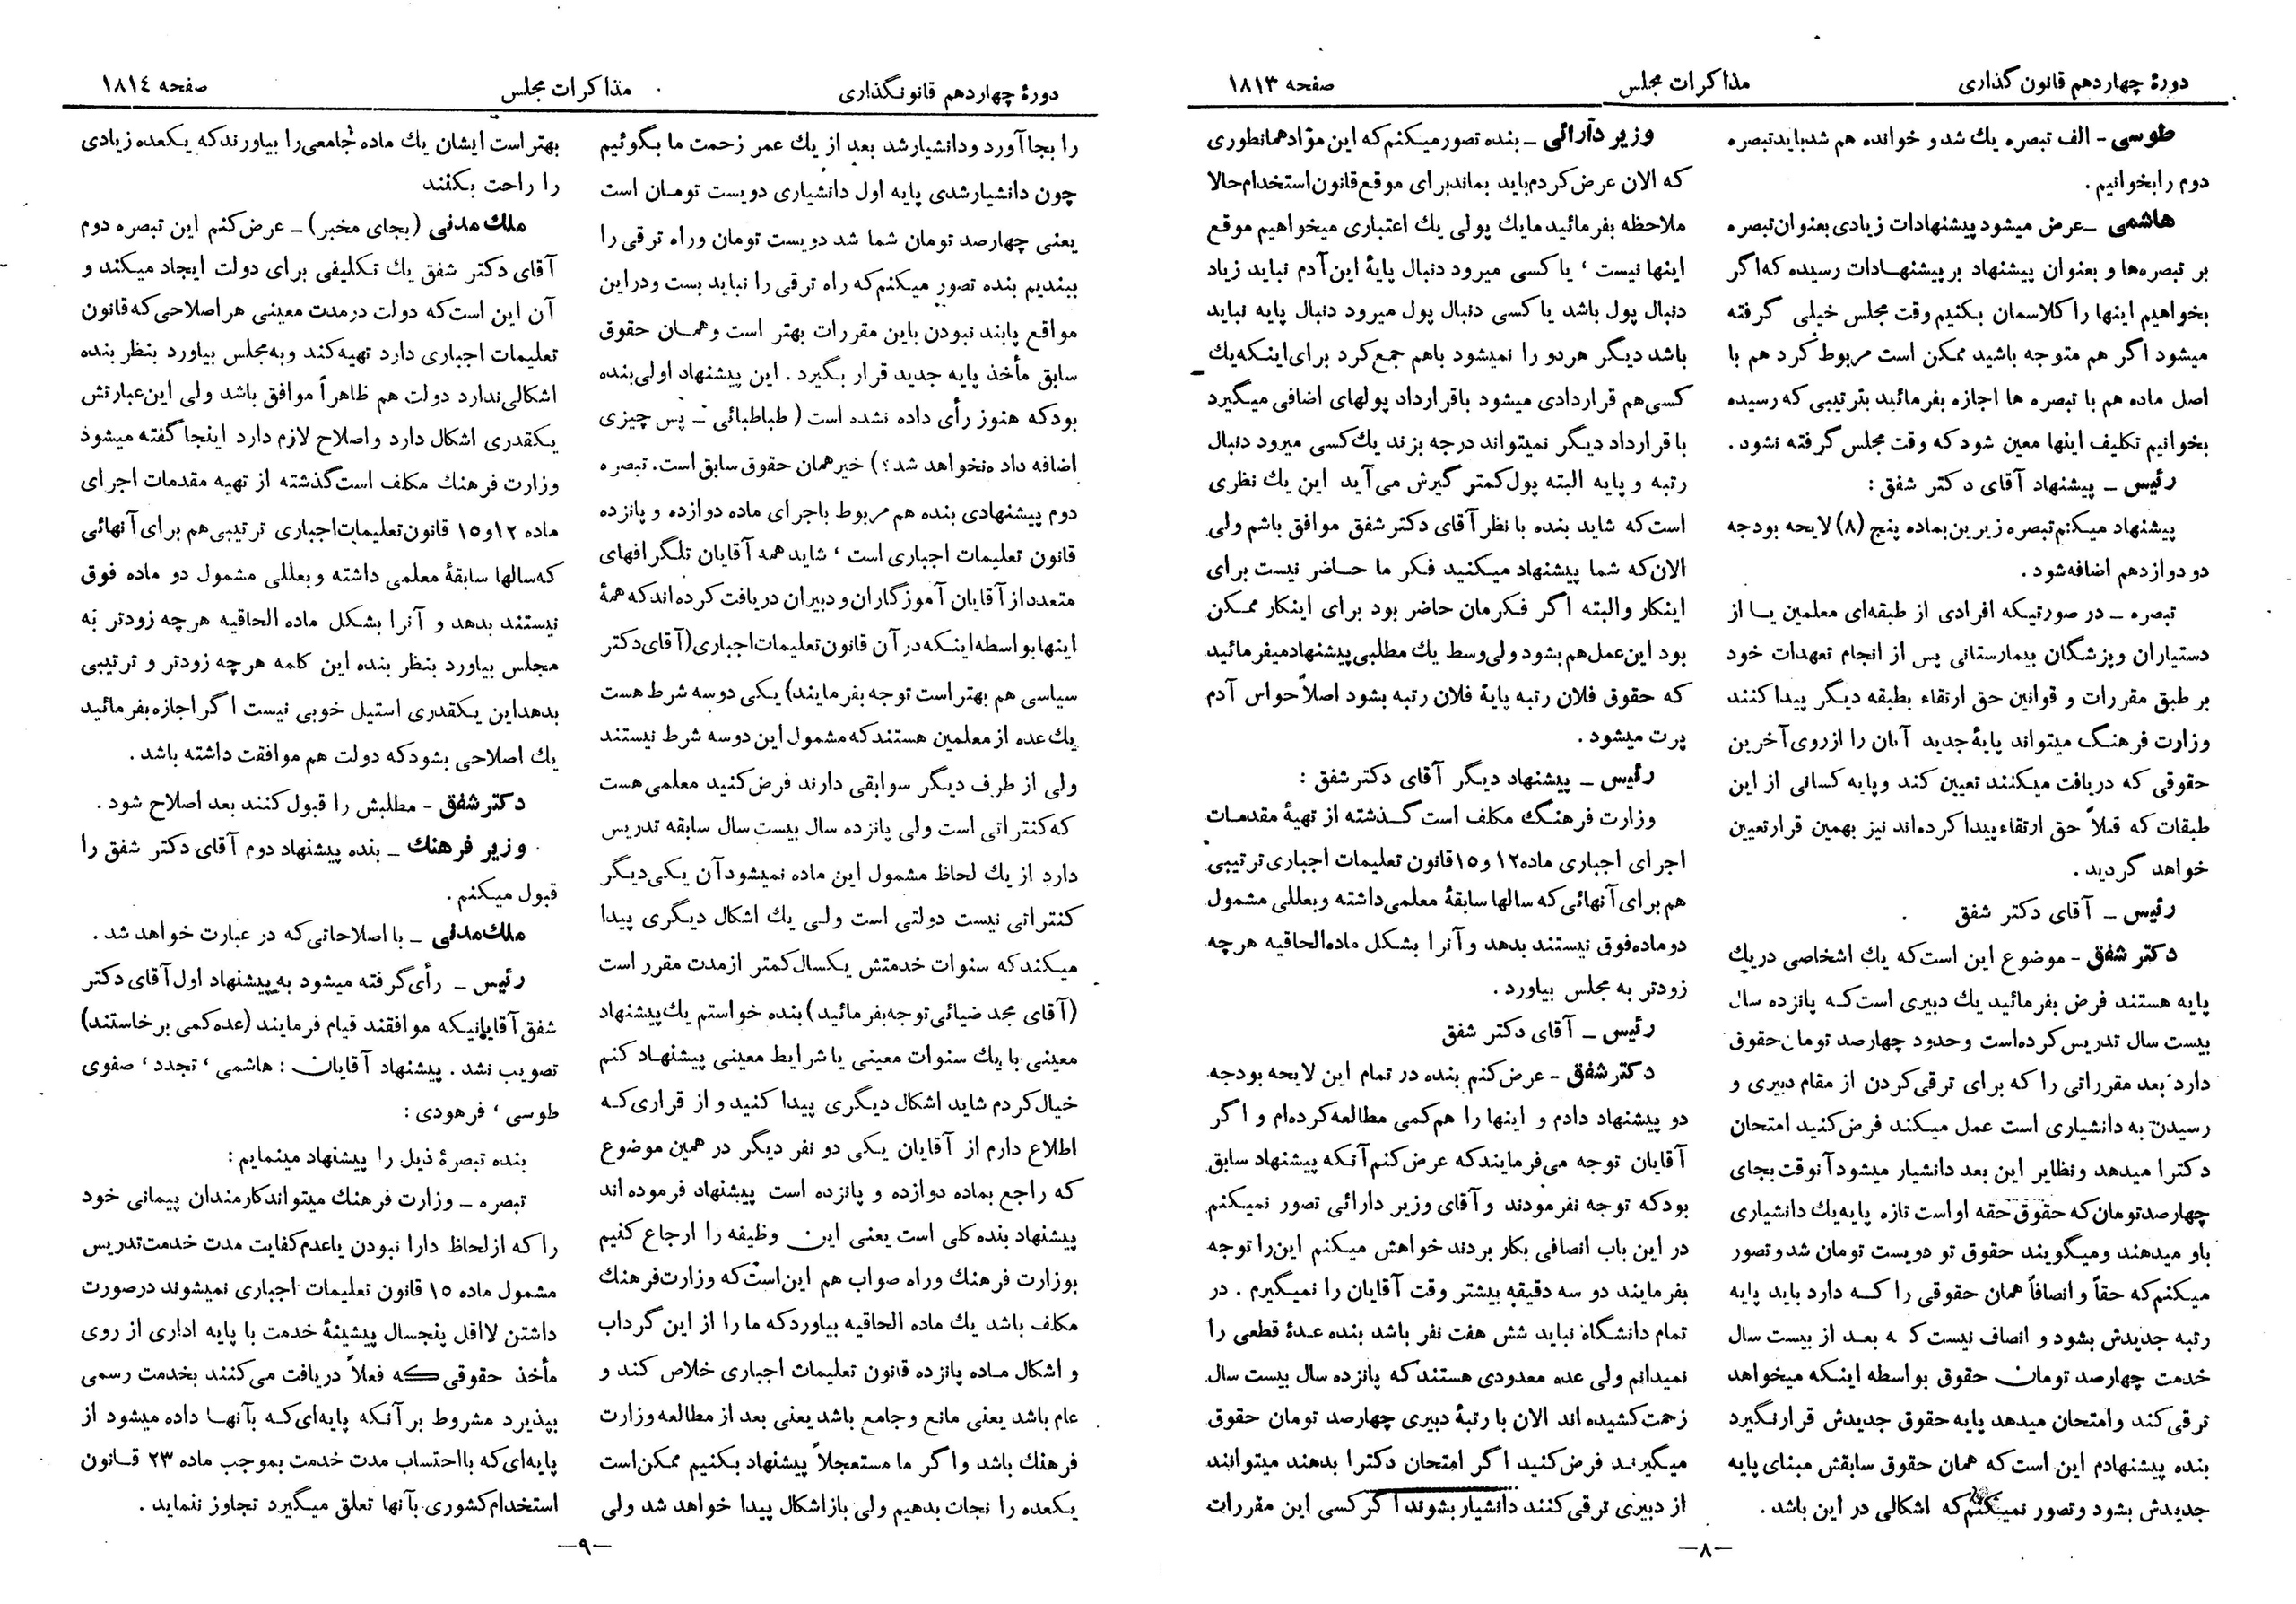 دورۀ چهاردهم قانون گذاری
مذاکرات مجلس
صفحه ۱۸۱۳
طوسی - الف تبصره یك شد و خوانده هم شد باید تبصره
دوم را بخوانیم .
هاشمی - عرض میشود پیشنهادات زیادی بعنوان تبصره
بر تبصره‌ها و بعنوان پیشنهاد بر پیشنهادات رسیده که اگر
بخواهیم اینها را کلاسمان بکنیم وقت مجلس خیلی گرفته
میشود اگر هم متوجه باشید ممکن است مربوط کرد هم با
اصل ماده هم با تبصره ها اجازه بفرمائید بترتیبی که رسیده
بخوانیم تکلیف اینها معین شود که وقت مجلس گرفته نشود .
رئیس - پیشنهاد آقای دکتر شفق :
پیشنهاد میکنم تبصره زیرین بماده پنج (۸) لایحه بودجه
دو دوازدهم اضافه شود .
تبصره - در صورتیکه افرادی از طبقه‌ای معلمین یا از
دستیاران و پزشگان بیمارستانی پس از انجام تعهدات خود
بر طبق مقررات و قوانین حق ارتقاء بطبقه دیگر پیدا کنند
وزارت فرهنگ میتواند پایۀ جدید آنان را از روی آخرین
حقوقی که دریافت میکنند تعیین کند و پایه کسانی از این
طبقات که قبلاً حق ارتقاء پیدا کرده‌اند نیز بهمین قرار تعیین
خواهد گردید .
رئیس - آقای دکتر شفق
دکتر شفق - موضوع این است که یك اشخاصی در یك
پایه هستند فرض بفرمائید یك دبیری است که پانزده سال
بیست سال تدریس کرده‌است و حدود چهارصد تومان حقوق
دارد بعد مقرراتی را که برای ترقی کردن از مقام دبیری و
رسیدن به دانشیاری است عمل میکند فرض کنید امتحان
دکترا میدهد و نظایر این بعد دانشیار میشود آنوقت بجای
چهارصد تومان که حقوق حقه او است تازه پایه یك دانشیاری
باو میدهند و میگویند حقوق تو دویست تومان شد و تصور
میکنم که حقاً و انصافاً همان حقوقی را که دارد باید پایه
رتبه جدیدش بشود و انصاف نیست که بعد از بیست سال
خدمت چهارصد تومان حقوق بواسطه اینکه میخواهد
ترقی کند و امتحان میدهد پایه حقوق جدیدش قرار نگیرد
بنده پیشنهادم این است که همان حقوق سابقش مبنای پایه
جدیدش بشود و تصور نمیکنم که اشکالی در این باشد .
وزیر دارائی - بنده تصور میکنم که این مواد همانطوری
که الان عرض کردم باید بماند برای موقع قانون استخدام حالا
ملاحظه بفرمائید ما یك پولی یك اعتباری میخواهیم موقع
اینها نیست ، یا کسی میرود دنبال پایۀ این آدم نباید زیاد
دنبال پول باشد یا کسی دنبال پول میرود دنبال پایه نباید
باشد دیگر هر دو را نمیشود باهم جمع کرد برای اینکه یك
کسی هم قراردادی میشود با قرارداد پولهای اضافی میگیرد
با قرارداد دیگر نمیتواند درجه بزند یك کسی میرود دنبال
رتبه و پایه البته پول کمتر گیرش می‌آید این یك نظری
است که شاید بنده با نظر آقای دکتر شفق موافق باشم ولی
الان که شما پیشنهاد میکنید فکر ما حاضر نیست برای
اینکار و البته اگر فکرمان حاضر بود برای اینکار ممکن
بود این عمل هم بشود ولی وسط یك مطلبی پیشنهاد میفرمائید
که حقوق فلان رتبه پایۀ فلان رتبه بشود اصلاً حواس آدم
پرت میشود .
رئیس - پیشنهاد دیگر آقای دکتر شفق :
وزارت فرهنگ مکلف است گذشته از تهیۀ مقدمات
اجرای اجباری ماده ۱۲ و ۱۵ قانون تعلیمات اجباری ترتیبی
هم برای آنهائی که سالها سابقۀ معلمی داشته و بعللی مشمول
دو ماده فوق نیستند بدهد و آنرا بشکل ماده الحاقیه هر چه
زودتر به مجلس بیاورد .
رئیس - آقای دکتر شفق
دکتر شفق - عرض کنم بنده در تمام این لایحه بودجه
دو پیشنهاد دادم و اینها را هم کمی مطالعه کرده‌ام و اگر
آقایان توجه می‌فرمایند که عرض کنم آنکه پیشنهاد سابق
بود که توجه نفرمودند و آقای وزیر دارائی تصور نمیکنم
در این باب انصافی بکار بردند خواهش میکنم این را توجه
بفرمایند دو سه دقیقه بیشتر وقت آقایان را نمیگیرم . در
تمام دانشگاه نباید شش هفت نفر باشد بنده عدۀ قطعی را
نمیدانم ولی عده معدودی هستند که پانزده سال بیست سال
زحمت کشیده اند الان با رتبۀ دبیری چهارصد تومان حقوق
میگیرند فرض کنید اگر امتحان دکترا بدهند میتوانند
از دبیری ترقی کنند دانشیار بشوند اگر کسی این مقررات
-۸-
دورۀ چهاردهم قانونگذاری
مذاکرات مجلس
صفحه ۱۸۱٤
را بجا آورد و دانشیار شد بعد از یك عمر زحمت ما بگوئیم
چون دانشیار شدی پایه اول دانشیاری دویست تومان است
یعنی چهارصد تومان شما شد دویست تومان و راه ترقی را
ببندیم بنده تصور میکنم که راه ترقی را نباید بست و در این
مواقع پابند نبودن باین مقررات بهتر است و همان حقوق
سابق مأخذ پایه جدید قرار بگیرد . این پیشنهاد اولی بنده
بود که هنوز رأی داده نشده است ( طباطبائی - پس چیزی
اضافه داده نخواهد شد ؟ ) خیر همان حقوق سابق است . تبصره
دوم پیشنهادی بنده هم مربوط باجرای ماده دوازده و پانزده
قانون تعلیمات اجباری است ، شاید همه آقایان تلگرافهای
متعدد از آقایان آموزگاران و دبیران دریافت کرده‌اند که همۀ
اینها بواسطه اینکه در آن قانون تعلیمات اجباری (آقای دکتر
سیاسی هم بهتر است توجه بفرمایند) یکی دو سه شرط هست
یك عده از معلمین هستند که مشمول این دو سه شرط نیستند
ولی از طرف دیگر سوابقی دارند فرض کنید معلمی هست
که کنتراتی است ولی پانزده سال بیست سال سابقه تدریس
دارد از یك لحاظ مشمول این ماده نمیشود آن یکی دیگر
کنتراتی نیست دولتی است ولی یك اشکال دیگری پیدا
میکند که سنوات خدمتش یکسال کمتر از مدت مقرر است
(آقای مجد ضیائی توجه بفرمائید) بنده خواستم یك پیشنهاد
معینی با یك سنوات معینی یا شرایط معینی پیشنهاد کنم
خیال کردم شاید اشکال دیگری پیدا کنید و از قراری که
اطلاع دارم از آقایان یکی دو نفر دیگر در همین موضوع
که راجع بماده دوازده و پانزده است پیشنهاد فرموده اند
پیشنهاد بنده کلی است یعنی این وظیفه را ارجاع کنیم
بوزارت فرهنك و راه صواب هم این است که وزارت فرهنك
مکلف باشد یك ماده الحاقیه بیاورد که ما را از این گرداب
و اشکال ماده پانزده قانون تعلیمات اجباری خلاص کند و
عام باشد یعنی مانع و جامع باشد یعنی بعد از مطالعه وزارت
فرهنك باشد و اگر ما مستعجلاً پیشنهاد بکنیم ممکن است
یکعده را نجات بدهیم ولی باز اشکال پیدا خواهد شد ولی
بهتر است ایشان یك ماده جامعی را بیاورند که یکعده زیادی
را راحت بکنند
ملك مدنی (بجای مخبر) - عرض کنم این تبصره دوم
آقای دکتر شفق یك تکلیفی برای دولت ایجاد میکند و
آن این است که دولت در مدت معینی هر اصلاحی که قانون
تعلیمات اجباری دارد تهیه کند و به مجلس بیاورد بنظر بنده
اشکالی ندارد دولت هم ظاهراً موافق باشد ولی این عبارتش
یکقدری اشکال دارد و اصلاح لازم دارد اینجا گفته میشود
وزارت فرهنك مکلف است گذشته از تهیه مقدمات اجرای
ماده ۱۲ و ۱۵ قانون تعلیمات اجباری ترتیبی هم برای آنهائی
که سالها سابقۀ معلمی داشته و بعللی مشمول دو ماده فوق
نیستند بدهد و آنرا بشکل ماده الحاقیه هر چه زودتر به
مجلس بیاورد بنظر بنده این کلمه هر چه زودتر و ترتیبی
بدهد این یکقدری استیل خوبی نیست اگر اجازه بفرمائید
یك اصلاحی بشود که دولت هم موافقت داشته باشد .
دکتر شفق - مطلبش را قبول کنند بعد اصلاح شود .
وزیر فرهنك - بنده پیشنهاد دوم آقای دکتر شفق را
قبول میکنم .
ملك مدنی - با اصلاحاتی که در عبارت خواهد شد .
رئیس - رأی گرفته میشود به پیشنهاد اول آقای دکتر
شفق آقایانیکه موافقند قیام فرمایند (عده کمی برخاستند)
تصویب نشد . پیشنهاد آقایان : هاشمی ، تجدد ، صفوی
طوسی ، فرهودی :
بنده تبصرۀ ذیل را پیشنهاد مینمایم :
تبصره - وزارت فرهنك میتواند کارمندان پیمانی خود
را که از لحاظ دارا نبودن یا عدم کفایت مدت خدمت تدریس
مشمول ماده ۱۵ قانون تعلیمات اجباری نمیشوند در صورت
داشتن لااقل پنجسال پیشینۀ خدمت با پایه اداری از روی
مأخذ حقوقی که فعلاً دریافت می‌کنند بخدمت رسمی
بپذیرد مشروط بر آنکه پایه‌ای که بآنها داده میشود از
پایه‌ای که با احتساب مدت خدمت بموجب ماده ۲۳ قانون
استخدام کشوری بآنها تعلق میگیرد تجاوز ننماید .
-۹-